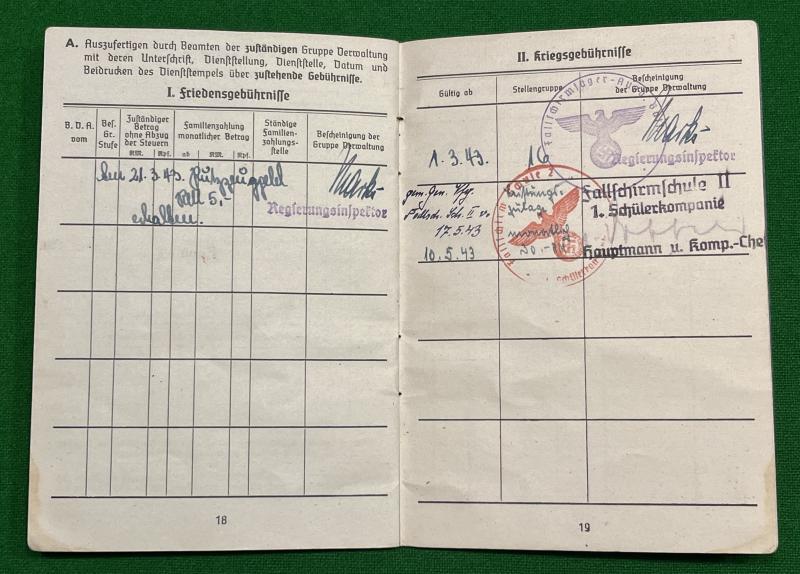 A. Auszufertigen durch Beamten der zuständigen Gruppe Verwaltung
mit deren Unterschrift, Dienststellung, Dienststelle, Datum und
Beidrucken des Dienststempels über zustehende Gebührnisse.
I. Friedensgebührnisse
B. D. A. vom
Bes. Gr. Stufe
Zuständiger Betrag ohne Abzug der Steuern
RM. Rpf.
Familienzahlung monatlicher Betrag
ab RM. Rpf.
Ständige Familien-zahlungs-stelle
Bescheinigung der Gruppe Verwaltung
Am 21.3.43.
5,-
erhalten.
Regierungsinspektor
18
II. Kriegsgebührnisse
Gültig ab
Stellengruppe
Bescheinigung
der Gruppe Verwaltung
Fallschirmjäger-
1.3.43.
16
Regierungsinspektor
gem. Gen.
II v.
17.5.43
10.5.43
Leistungs-
zulage
monatlich
Fallschirmschule II
1. Schülerkompanie
Hauptmann u. Komp.-Chef
19